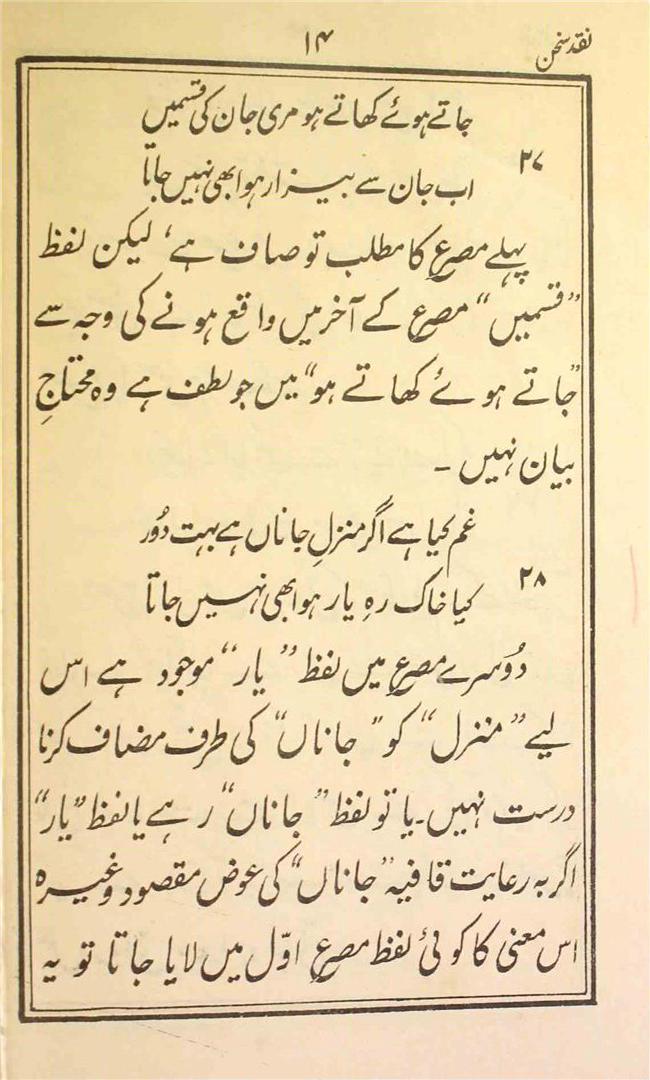 نقد سخن
۱۴
جاتے ہوئے کھاتے ہو مری جان کی قسمیں
۲۷
اب جان سے بیزار ہوا بھی نہیں جاتا
پہلے مصرع کا مطلب تو صاف ہے، لیکن لفظ
”قسمیں“ مصرع کے آخر میں واقع ہونے کی وجہ سے
”جاتے ہوئے کھاتے ہو“ میں جو لطف ہے وہ محتاجِ
بیان نہیں ۔
غم کیا ہے اگر منزلِ جاناں ہے بہت دُور
۲۸
کیا خاک رہِ یار ہوا بھی نہیں جاتا
دُوسرے مصرع میں لفظ ”یار“ موجود ہے اس
لیے ”منزل“ کو ”جاناں“ کی طرف مضاف کرنا
درست نہیں۔ یا تو لفظ ”جاناں“ رہے یا لفظ ”یار“
اگر بہ رعایت قافیہ ”جاناں“ کی عوض مقصود وغیرہ
اس معنی کا کوئی لفظ مصرعِ اوّل میں لایا جاتا تو یہ